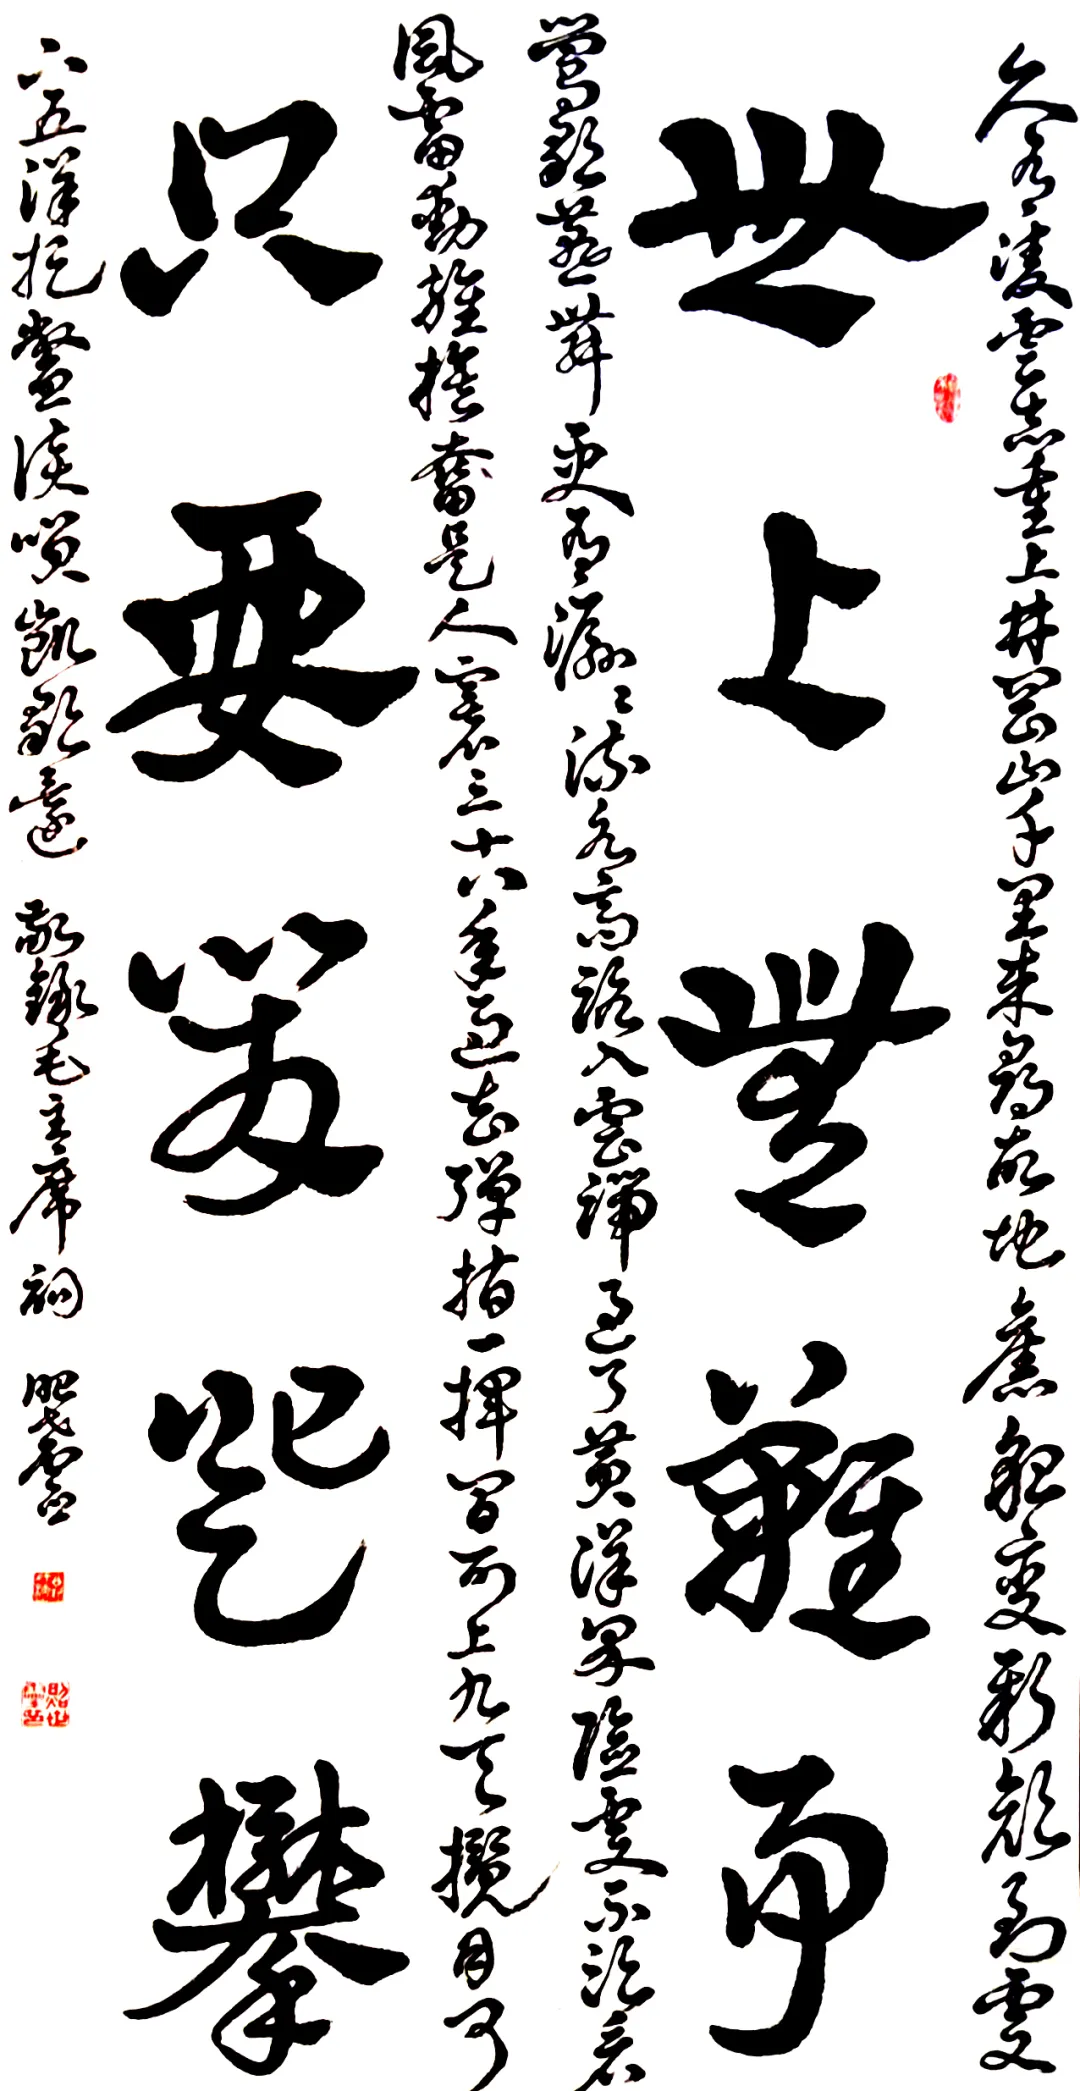 久有凌雲志重上井岡山千里来尋故地舊貌变新顔到處
世上無難事
鶯歌燕舞更有潺々流水高路入雲端過了黄洋界險處不須看
風雷動旌旗奮是人寰三十八年過去彈指一揮間可上九天攬月可
只要肯登攀
下五洋捉鱉談笑凱歌還 敬録毛主席詞